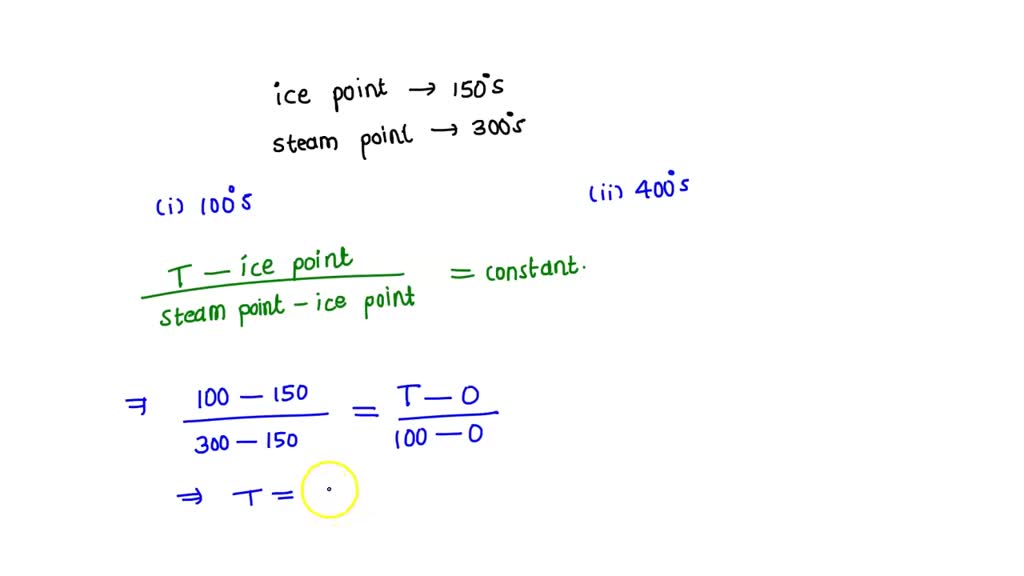 ice point → 150°S
steam point → 300°S
(i) 100°S
(ii) 400°S
T — ice point
steam point — ice point
= constant.
⇒ 100 — 150
300 — 150
= T — 0
100 — 0
⇒ T =